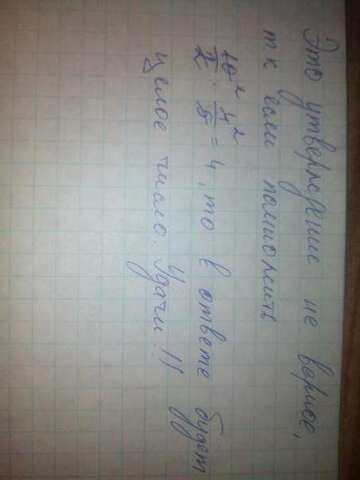 Это утверждение не верное,
т.к если помножить
10²/2 · 4²/5 = 4, то в ответе будет
целое число. Удачи!!